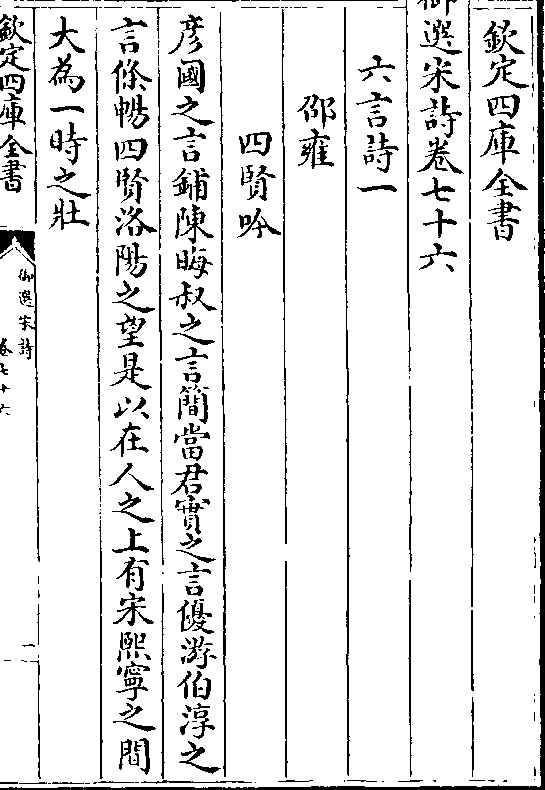 欽定四庫全書
御選宋詩卷七十六
六言詩一
邵雍
四賢吟
彥國之言鋪陳晦叔之言簡當君實之言優游伯淳之
言條暢四賢洛陽之望是以在人之上有宋熙寧之間
大為一時之壯
欽定四庫全書
御選宋詩
卷七十六
一